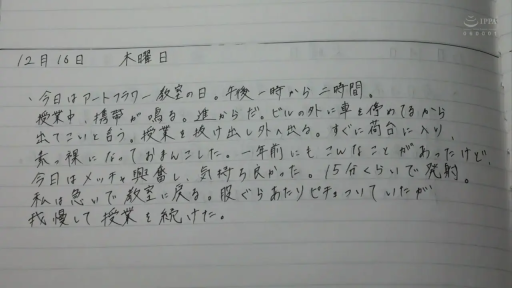 IPPA
12月16日 木曜日
今日はアートフラワー教室の日。午後一時から二時間。
授業中、携帯が鳴る。進からだ。ビルの外に車を停めてるから
出てこいと言う。授業を抜け出し外へ出る。すぐに荷台に入り、
素っ裸になっておまんこした。一年前にもこんなことがあったけど、
今日はメッチャ興奮し、気持ち良かった。15分くらいで発射。
私は急いで教室に戻る。股ぐらあたりピチョついていたが
我慢して授業を続けた。